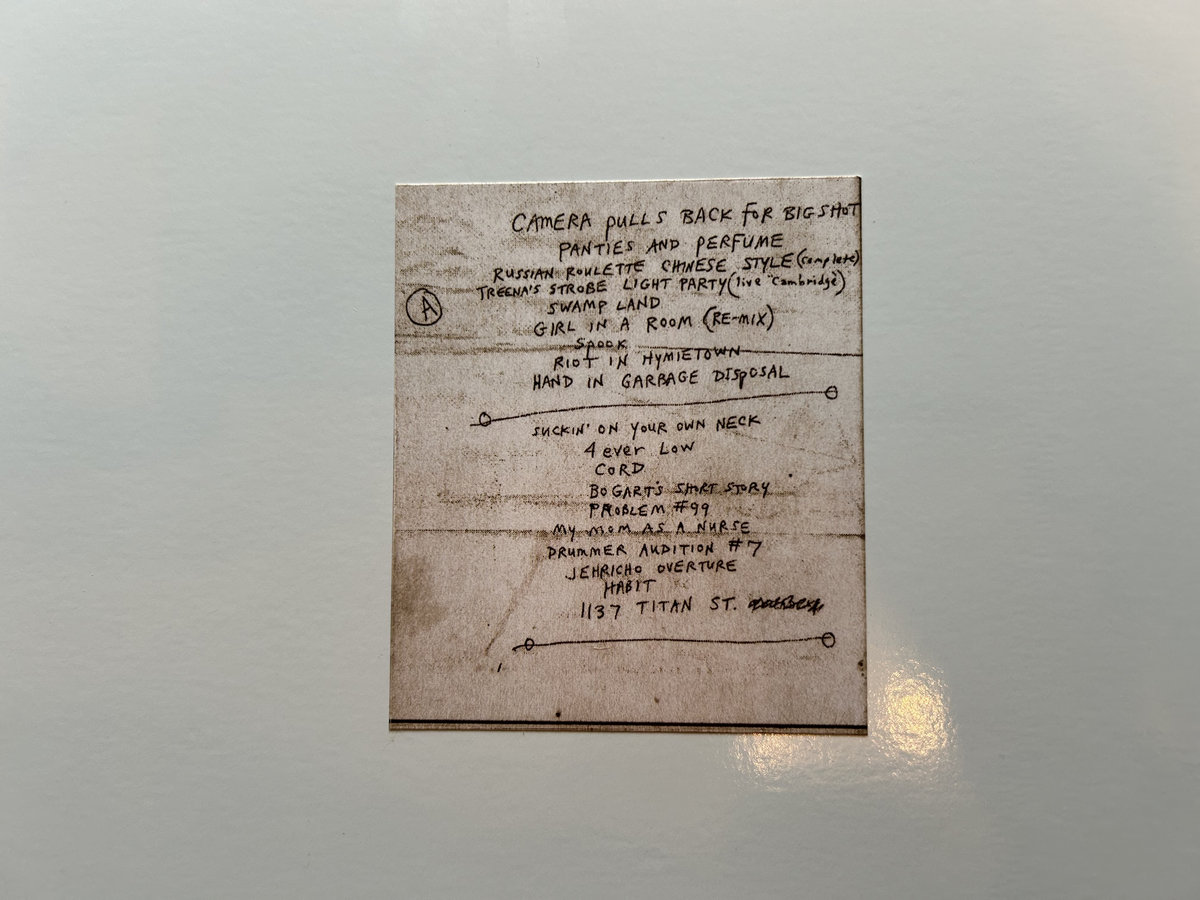 CAMERA PULLS BACK FOR BIG SHOT
PANTIES AND PERFUME
RUSSIAN ROULETTE CHINESE STYLE (complete)
TREENA'S STROBE LIGHT PARTY (live "Cambridge")
A
SWAMP LAND
GIRL IN A ROOM (RE-MIX)
SPOOK
RIOT IN HYMIETOWN
HAND IN GARBAGE DISPOSAL
SUCKIN' ON YOUR OWN NECK
4 ever Low
CORD
BOGART'S SHORT STORY
PROBLEM #99
MY MOM AS A NURSE
DRUMMER AUDITION #7
JEHRICHO OVERTURE
HABIT
1137 TITAN ST.